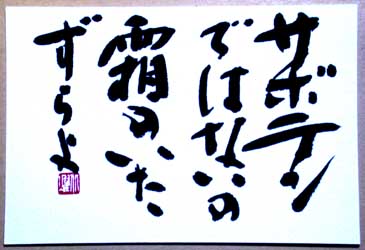 サボテン
ではないの
霜のいた
ずらよ